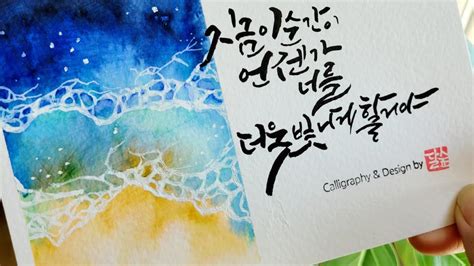 지금 이 순간이
언젠가
너를
더욱 빛나게 할거야
Calligraphy & Design by 달순